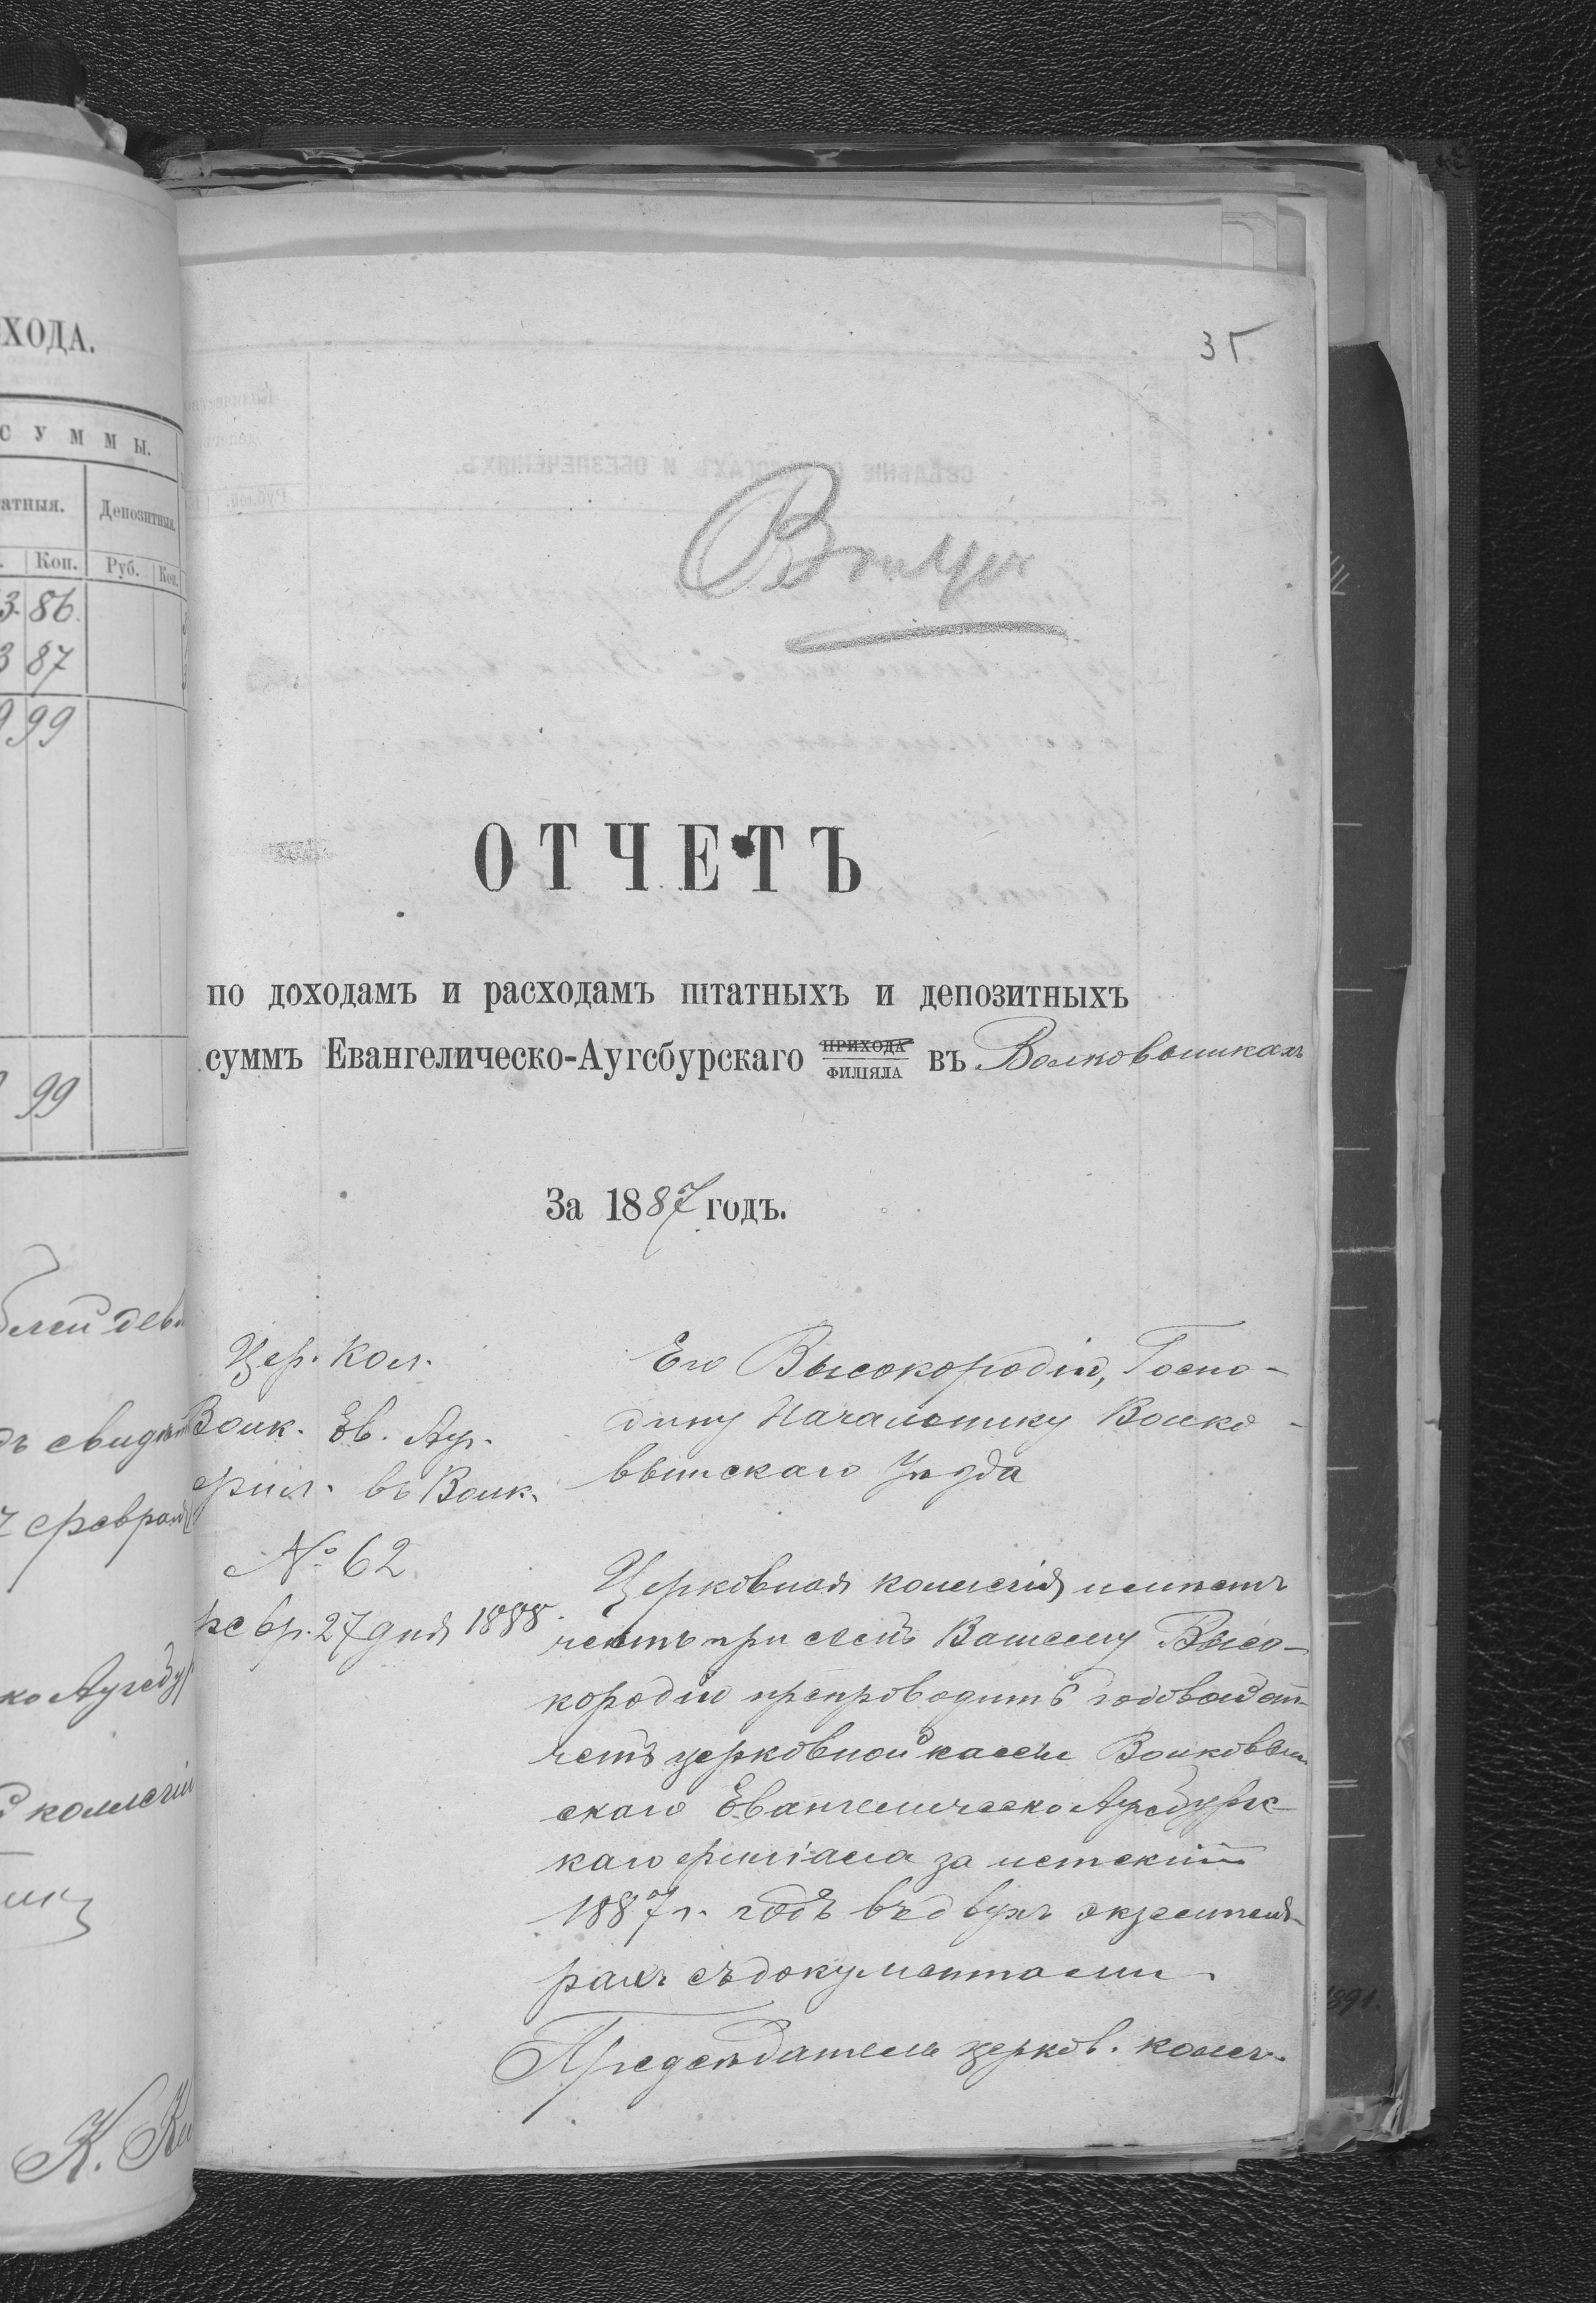 ХОДА.
С У М М Ы.
атныя. Депозитныя.
Коп. Руб. Коп.
3 86.
3 87
9 99
99
рублей девя
свидѣ
февраля
ко Аугсбур
коллегіи
К. Ки
35
ОТЧЕТЪ
по доходамъ и расходамъ штатныхъ и депозитныхъ
суммъ Евангелическо-Аугсбурскаго ПРИХОДА ФИЛІЯЛА въ Волковышкахъ
За 1887 годъ.
Цер. Кол.
Волк. Ев. Ауг.
фил. въ Волк.
№ 62
февр. 27 дня 1888.
Его Высокородію, Госпо-
дину Начальнику Волко-
вышскаго Уѣзда
Церковная коллегія имѣетъ
честь при семъ Вашему Высо-
кородію препроводить годовой от-
четъ церковной кассы Волковыш
скаго Евангелическо Аугсбургс
каго филіала за истекшій
1887 г. годъ въ двухъ экземпля-
рахъ съ документами.
Предсѣдатель церков. колег.
1891.